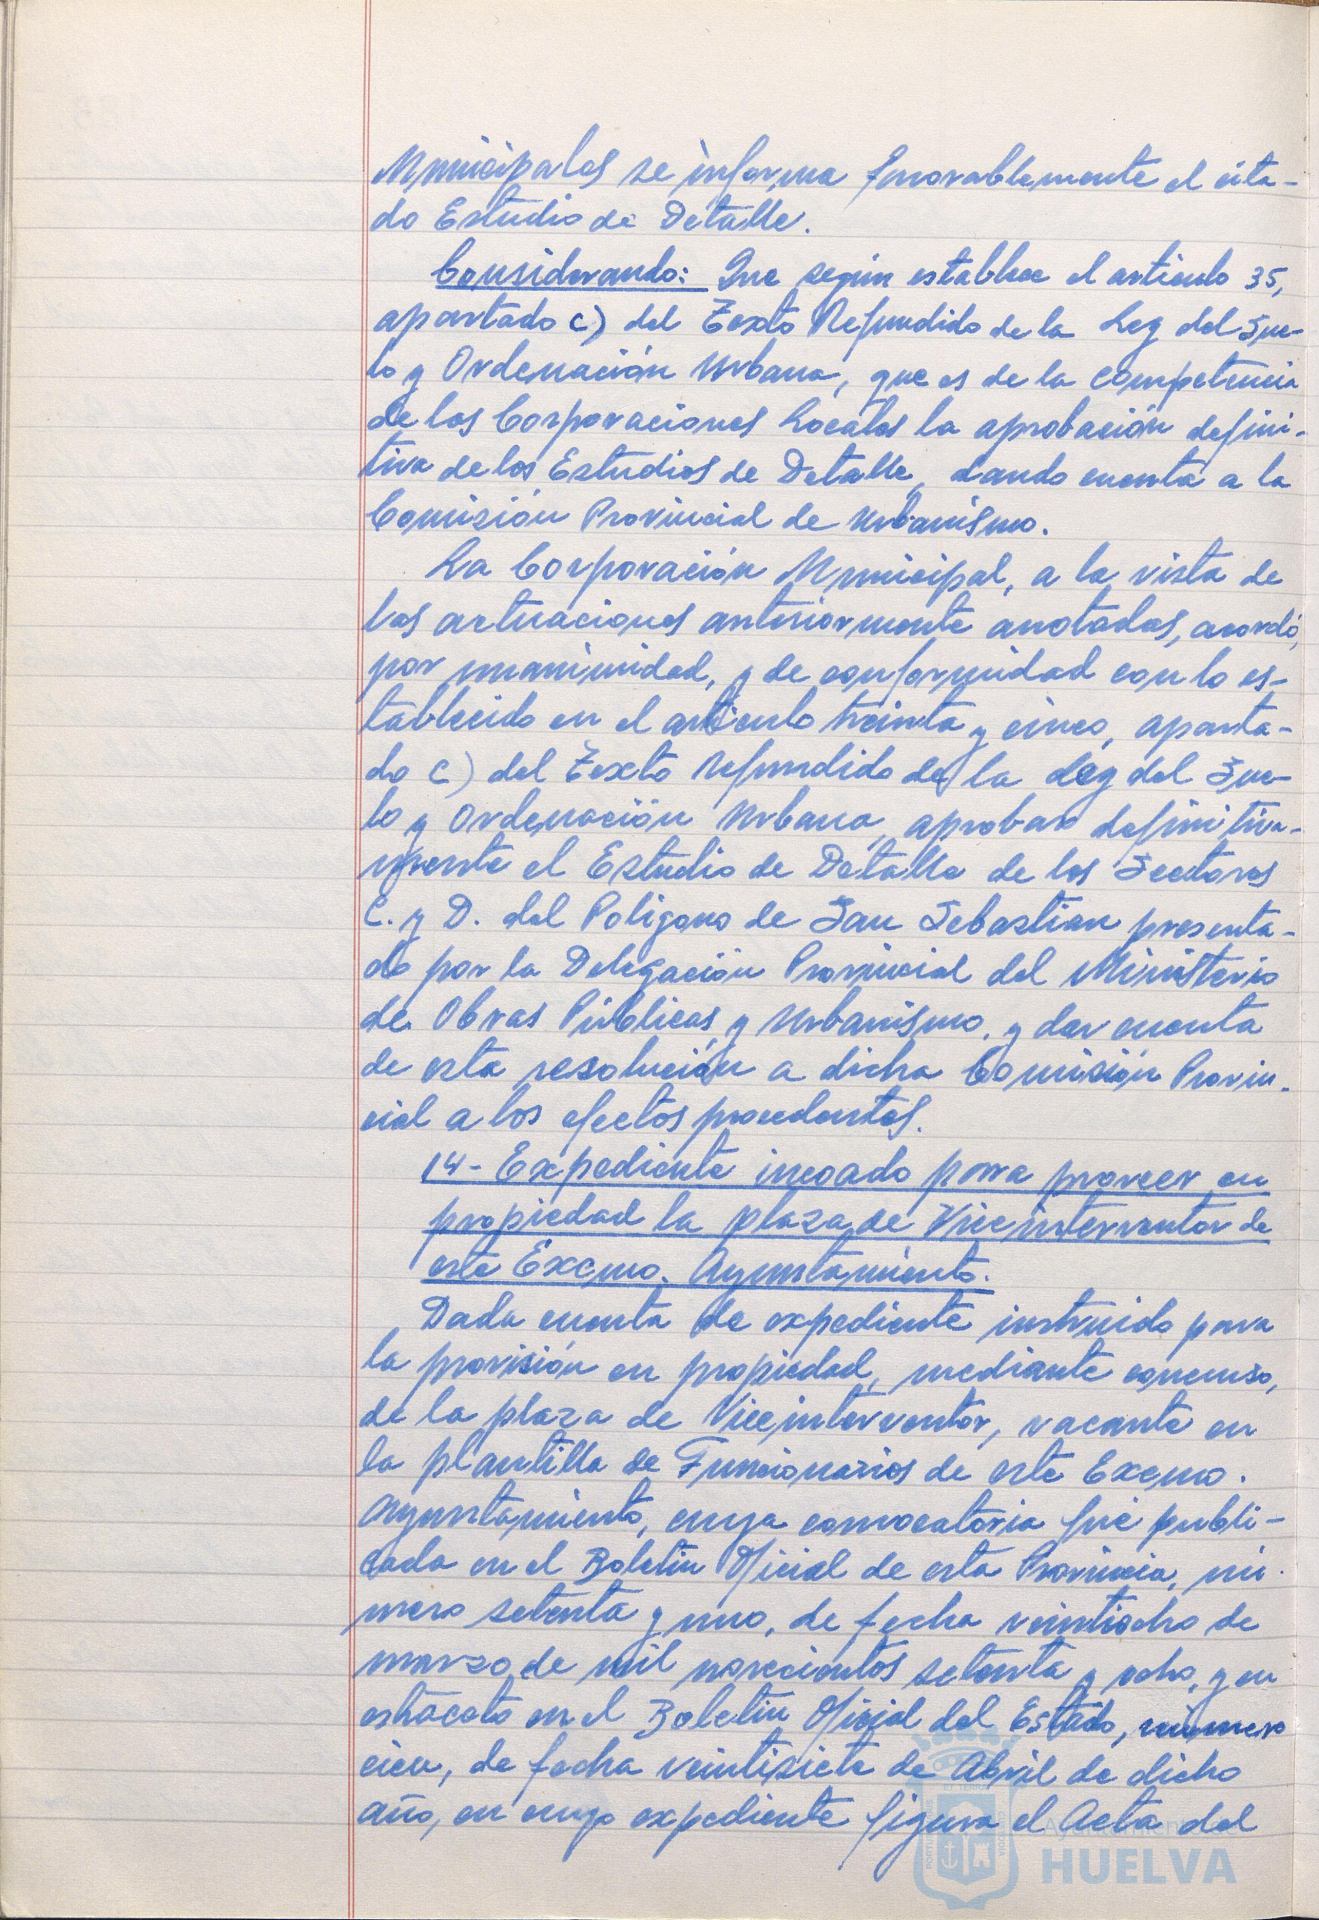 Municipales se informa favorablemente el cita-
do Estudio de Detalle.
Considerando: Que según establece el artículo 35,
apartado c) del Texto Refundido de la Ley del Sue-
lo y Ordenación Urbana, que es de la competencia
de las Corporaciones Locales la aprobación defini-
tiva de los Estudios de Detalle, dando cuenta a la
Comisión Provincial de Urbanismo.
La Corporación Municipal, a la vista de
las actuaciones anteriormente anotadas, acordó,
por unanimidad, y de conformidad con lo es-
tablecido en el artículo treinta y cinco, aparta-
do c) del Texto Refundido de la Ley del Sue-
lo y Ordenación Urbana, aprobar definitiva-
mente el Estudio de Detalle de los Sectores
C. y D. del Polígono de San Sebastian presenta-
do por la Delegación Provincial del Ministerio
de Obras Públicas y Urbanismo, y dar cuenta
de esta resolución a dicha Comisión Provin-
cial a los efectos procedentes.
14- Expediente incoado para proveer en
propiedad la plaza de Viceinterventor de
este Excmo. Ayuntamiento.
Dada cuenta de expediente instruido para
la provisión en propiedad, mediante concurso,
de la plaza de Viceinterventor, vacante en
la plantilla de Funcionarios de este Excmo.
Ayuntamiento, cuya convocatoria fué publi-
cada en el Boletin Oficial de esta Provincia, nú-
mero setenta y uno, de fecha veintiocho de
marzo de mil novecientos setenta y ocho, y en
extracto en el Boletin Oficial del Estado, número
cien, de fecha veintisiete de Abril de dicho
año, en cuyo expediente figura el Acta del
Ayuntamiento de
HUELVA